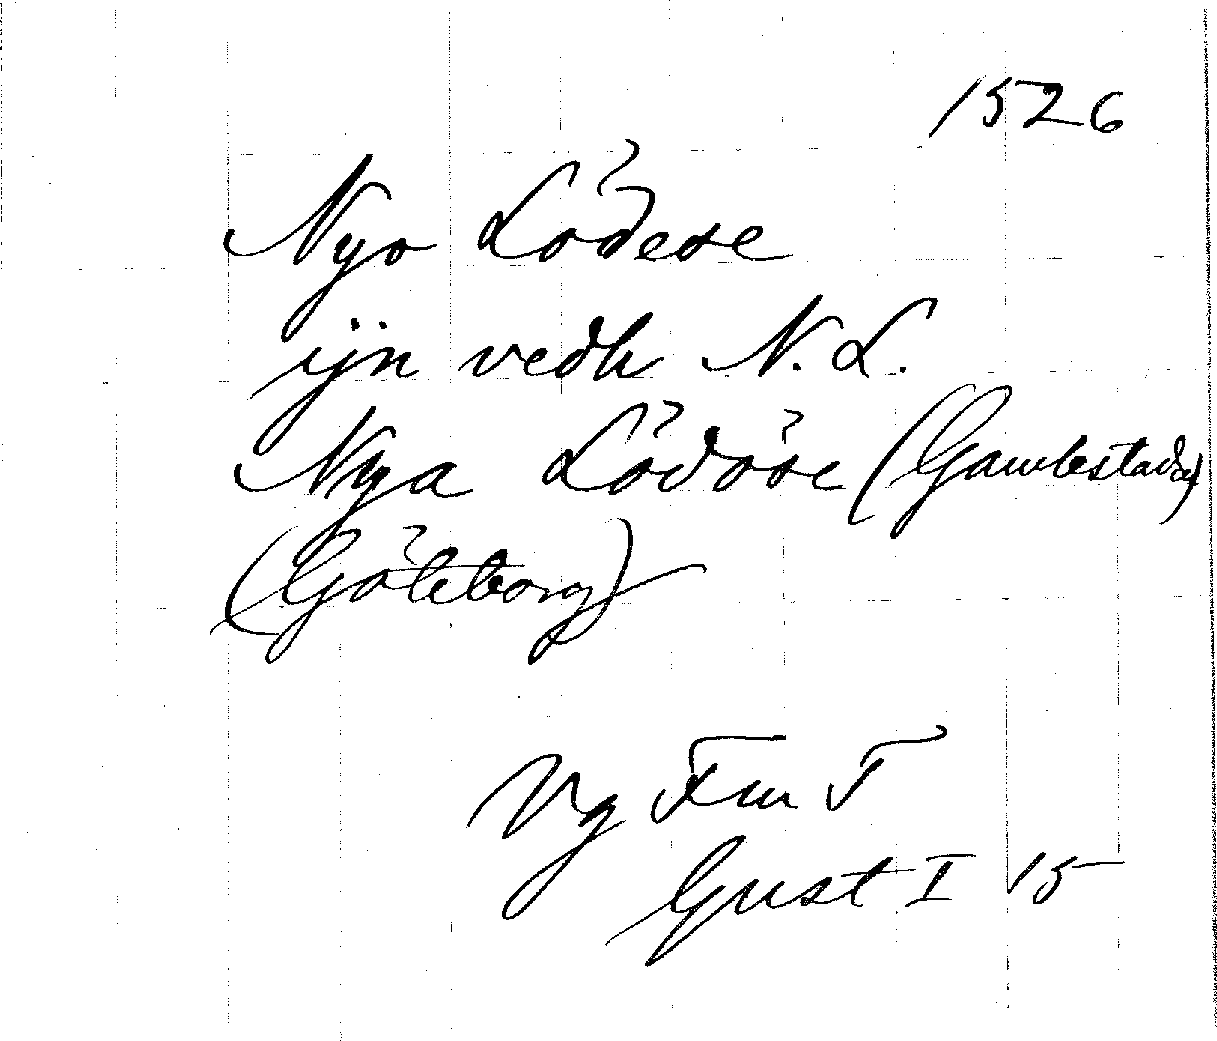 1526
Nyo Lödese
ijn vedh N. L.
Nya Lödöse (Gamlestaden)
(Göteborg)
Vg Fm F
Gust I 15